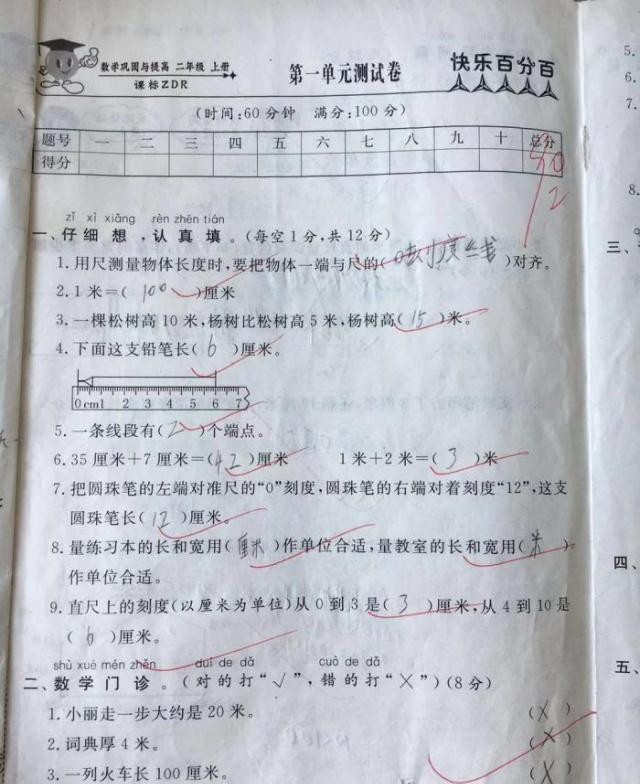 数学巩固与提高 二年级 上册
课标ZDR
第一单元测试卷
快乐百分百
(时间:60分钟 满分:100分)
题号 一 二 三 四 五 六 七 八 九 十 总分
得分
zǐ xì xiǎng rèn zhēn tián
一、仔细想,认真填。(每空1分,共12分)
1.用尺测量物体长度时,要把物体一端与尺的( 0刻度线 )对齐。
2.1米=( 100 )厘米
3.一棵松树高10米,杨树比松树高5米,杨树高( 15 )米。
4.下面这支铅笔长( 6 )厘米。
0cm1 2 3 4 5 6 7
5.一条线段有( 2 )个端点。
6.35厘米+7厘米=( 42 )厘米 1米+2米=( 3 )米
7.把圆珠笔的左端对准尺的“0”刻度,圆珠笔的右端对着刻度“12”,这支
圆珠笔长( 12 )厘米。
8.量练习本的长和宽用( 厘米 )作单位合适,量教室的长和宽用( 米 )
作单位合适。
9.直尺上的刻度(以厘米为单位)从0到3是( 3 )厘米,从4到10是
( 6 )厘米。
shù xué mén zhěn duì de dǎ cuò de dǎ
二、数学门诊。(对的打“√”,错的打“×”)(8分)
1.小丽走一步大约是20米。 (×)
2.词典厚4米。 (×)
3.一列火车长100厘米。 (×)
5.
6.
7.
8.
三、
四、
五、